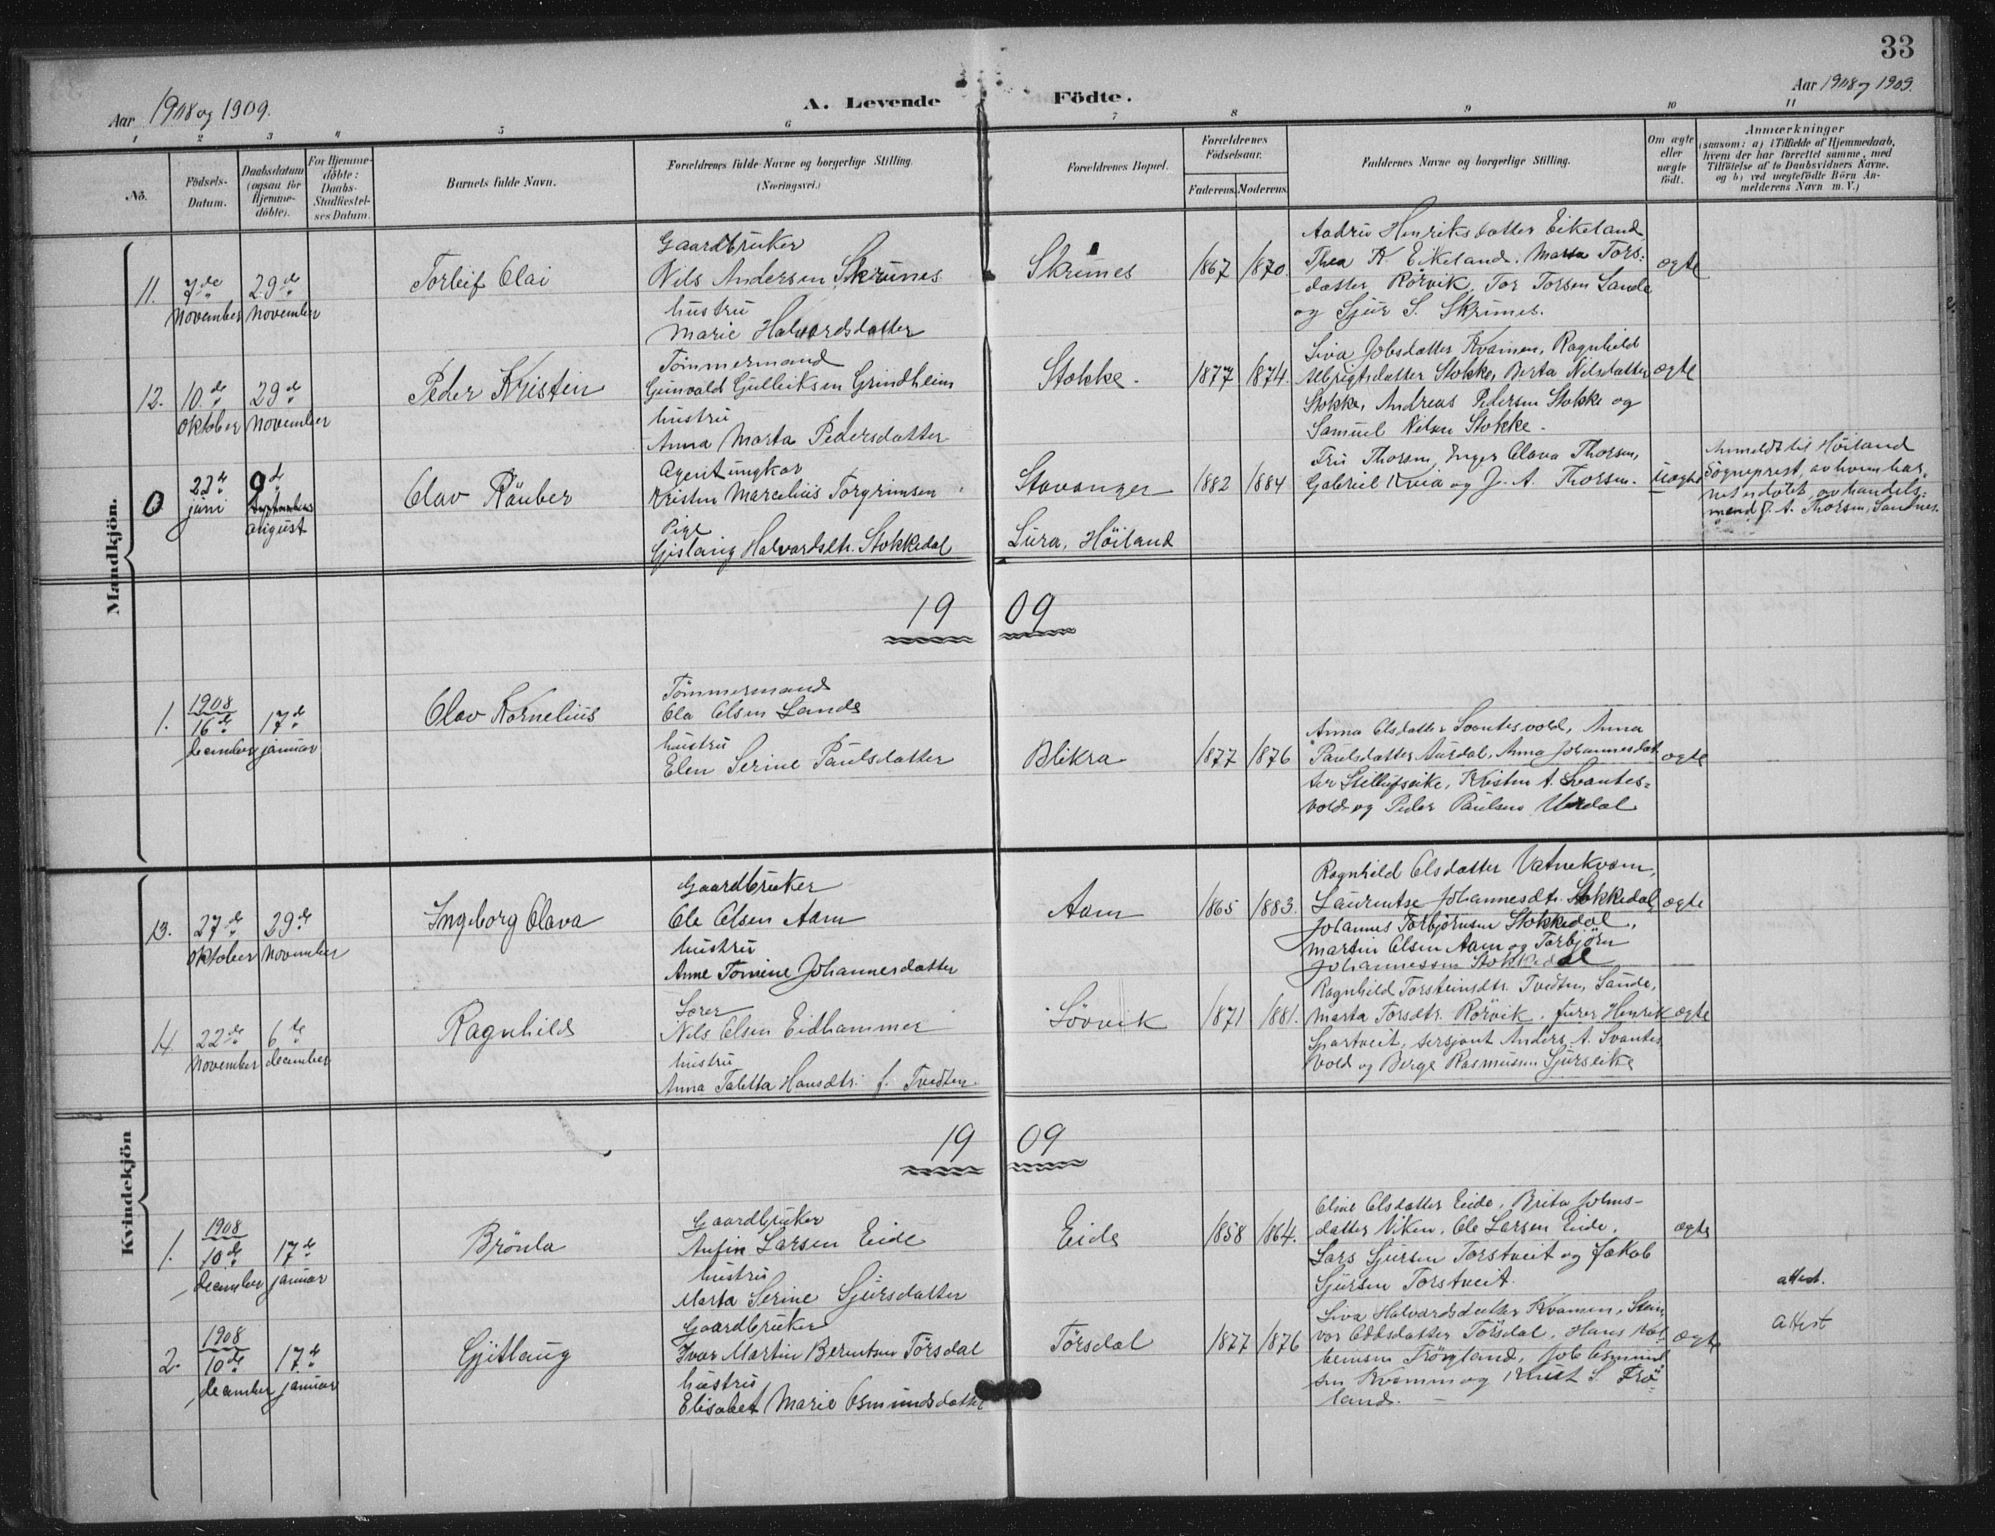 33
Aar 1908 og 1909.
A. Levende Födte.
Aar 1908 og 1909.
1 2 3 4 5 6 7 8 9 10 11
No.
Födsels-
Datum.
Daabsdatum
(ogsaa for
Hjemme-
döbte).
For Hjemme-
döbte:
Daabs-
Stadfæstel-
ses Datum.
Barnets fulde Navn.
Forældrenes fulde Navne og borgerlige Stilling.
(Næringsvei.)
Forældrenes Bopæl.
Forældrenes
Födselsaar.
Faderens. Moderens.
Faddernes Navne og borgerlige Stilling.
Om ægte
eller
uægte
födt.
Anmærkninger
(saasom: a) i Tilfælde af Hjemmedaab,
hvem der har forrettet samme, med
Tilföielse af to Daabsvidners Navne.
og b) ved uægtefödte Börn An-
melderens Navn m. V.)
Mandkjön.
11.
7de
november
29de
november
Torleif Olai
Gaardbruker
Nils Andersen Skrunes
hustru
Marie Halvardsdatter
Skrunes
1867
1870.
Henriksdatter Eikeland,
Thea K. Eikeland. Marta Tors-
datter Rörvik, Tor Torsen Sande
og Sjur S. Skrunes.
ægte
12.
10de
oktober
29de
november
Peder Kristin
Tömmermand
Gunvald Gulleiksen Grindheim
hustru
Anna Marta Pedersdatter
Stokke.
1877
1874.
Siva Jobsdatter Kvamen, Ragnhild
Stokke, Berta Nilsdatter
Stokke, Andreas Pedersen Stokke og
Samuel Nilsen Stokke.
ægte
0
22de
juni
9de
august
Olav Räuber
Agent ungkar
Kristen Marcelius Torgrimsen
Pige
Gjislaug Halvardsdtr. Stokkedal
Stavanger
Lura, Höiland
1882
1884
Fru Thorsen, Inger Olava Thorsen,
Gabriel Kvia og J. A. Thorsen.
Uægte
Anmeldt til Höiland
Sogneprest, av hvem bar-
net er döbt, av handels-
mand J. A. Thorsen, Sandnes.
1909
1.
1908
16de
december
17de
januar
Olav Kornelius
Tömmermand
Ola Olsen Sande
hustru
Elen Serine Paulsdatter
Blikra
1877
1876
Anna Olsdatter Svantesvold, Anna
Paulsdatter Aurdal, Anna Johannesdat-
ter Stelleifseike, Kristen A. Svantes-
vold og Peder Paulsen Urdal
ægte
Kvindekjön
13.
27de
oktober
29de
november
Ingeborg Olava
Gaardbruker
Ole Olsen Aam
hustru
Anne Tomine Johannesdatter
Aam
1865
1883.
Ragnhild Olsdatter Vatnekvam,
Laurentse Johannesdtr. Stokkedal,
Johannes Torbjörnsen Stokkedal,
Martin Olsen Aam og Torbjörn
Johannessen Stokkedal
ægte
14.
22de
november
6te
december
Ragnhild
Lærer
Nils Olsen Eidhammer
hustru
Anna Taletta Hansdtr. f. Tvedten.
Lövvik
1871
1881.
Ragnhild Torsteinsdtr. Tvedten, Sande,
Marta Torsdtr. Rörvik, furer Henrik
Spartveit, sersjant Anders A. Svantes-
vold og Berge Rasmussen Sjurseike
ægte
1909
1.
1908
10de
december
17de
januar
Brönla
Gaardbruker
Anfin Larsen Eide
hustru
Marta Serine Sjursdatter
Eide
1858
1864.
Oline Olsdatter Eide, Brita Johns-
datter Viken, Ole Larsen Eide,
Lars Sjursen Torstveit og Jakob
Sjursen Torstveit.
ægte
attest.
2.
1908
10de
december
17de
januar
Gjitlaug
Gaardbruker
Ivar Martin Berntsen Törsdal
hustru
Elisabet Marie Osmundsdatter
Törsdal
1877
1876
Siva Halvardsdatter Kvamen, Stein-
vor Oddsdatter Törsdal, Hans
Job Osmund-
sen Kvammen og Knut S. Frö-
land.
ægte
Attest